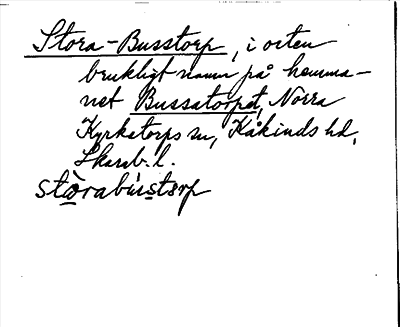 Stora-Busstorp, i orten
brukligt namn på hemma-
net Bussatorpet, Norra
Kyrketorps sn, Kåkinds hd,
Skarab. l.
stòrabùstərp